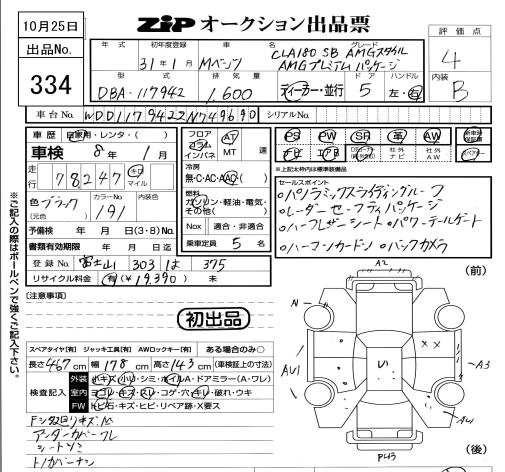 10月25日
ZiP オークション出品票
評価点
出品No.
334
年式 初年度登録 車名 グレード
31年1月 Mベンツ CLA180 SB AMGスタイル
AMGプレミアムパッケージ
4
型式 排気量 ドア ハンドル
DBA-117942 1,600 ディーラー・並行 5 左・右
内装
B
車台No. WDD1179422N749690 シリアルNo.
車歴 自家用・レンタ・( )
車検 8年1月
走行 78,247 キロ マイル
色 ブラック カラーNo. 191 内装色
(元色)
予備検 年 月 日(3・8)No.
書類有効期限 年 月 日
登録No. 富士山 303 は 375
リサイクル料金 有(¥19,390) 未
フロア コラム インパネ AT MT 速
冷房
無・C・AC・AAC・( )
燃料
ガソリン・軽油・電気・その他( )
Nox 適合・非適合
乗車定員 5名
PS PW SR 革 AW 新車時保証書
ナビ エアB 社外ナビ 社外AW
※上記太枠内は標準装備品
セールスポイント
○パノラミックスライディングルーフ
○レーダーセーフティパッケージ
○ハーフレザーシート ○パワーテールゲート
○ハーマンカードン ○バックカメラ
※ご記入の際はボールペンで強くご記入下さい。
(注意事項)
初出品
スペアタイヤ[有] ジャッキ工具[有] AWロックキー[有] ある場合のみ○
長さ467cm 幅178cm 高さ143cm (車検証上の寸法)
検査記入
外装 小キズ・小凹・シミ・ホイルA・ドアミラー(A・ワレ)
室内 ヨゴレ・キズ・スレ・コゲ・穴・キレ・破れ・ウキ
FW トビ石・キズ・ヒビ・リペア跡・X要ス
アンダーカバーワレ
シートシミ
(前)
A2
N
AU1
××
い
A3
AU1
(後)